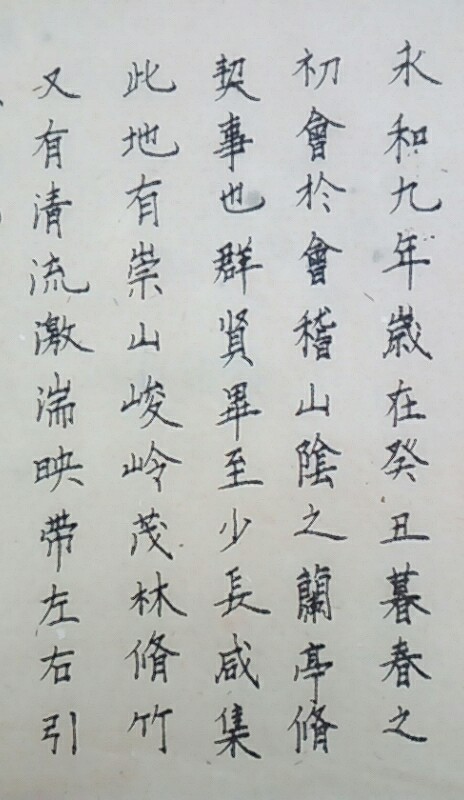 永和九年嵗在癸丑暮春之
初會於會稽山陰之蘭亭脩
契事也群賢畢至少長咸集
此地有崇山峻岭茂林脩竹
又有清流激湍映帶左右引